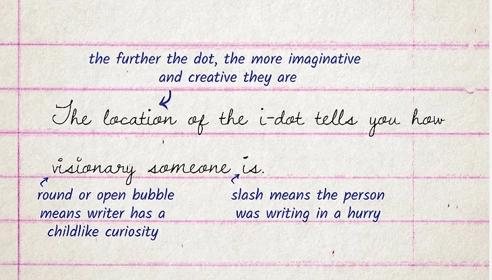 the further the dot, the more imaginative
and creative they are
The location of the i-dot tells you how
visionary someone is.
round or open bubble
means writer has a
childlike curiosity
slash means the person
was writing in a hurry